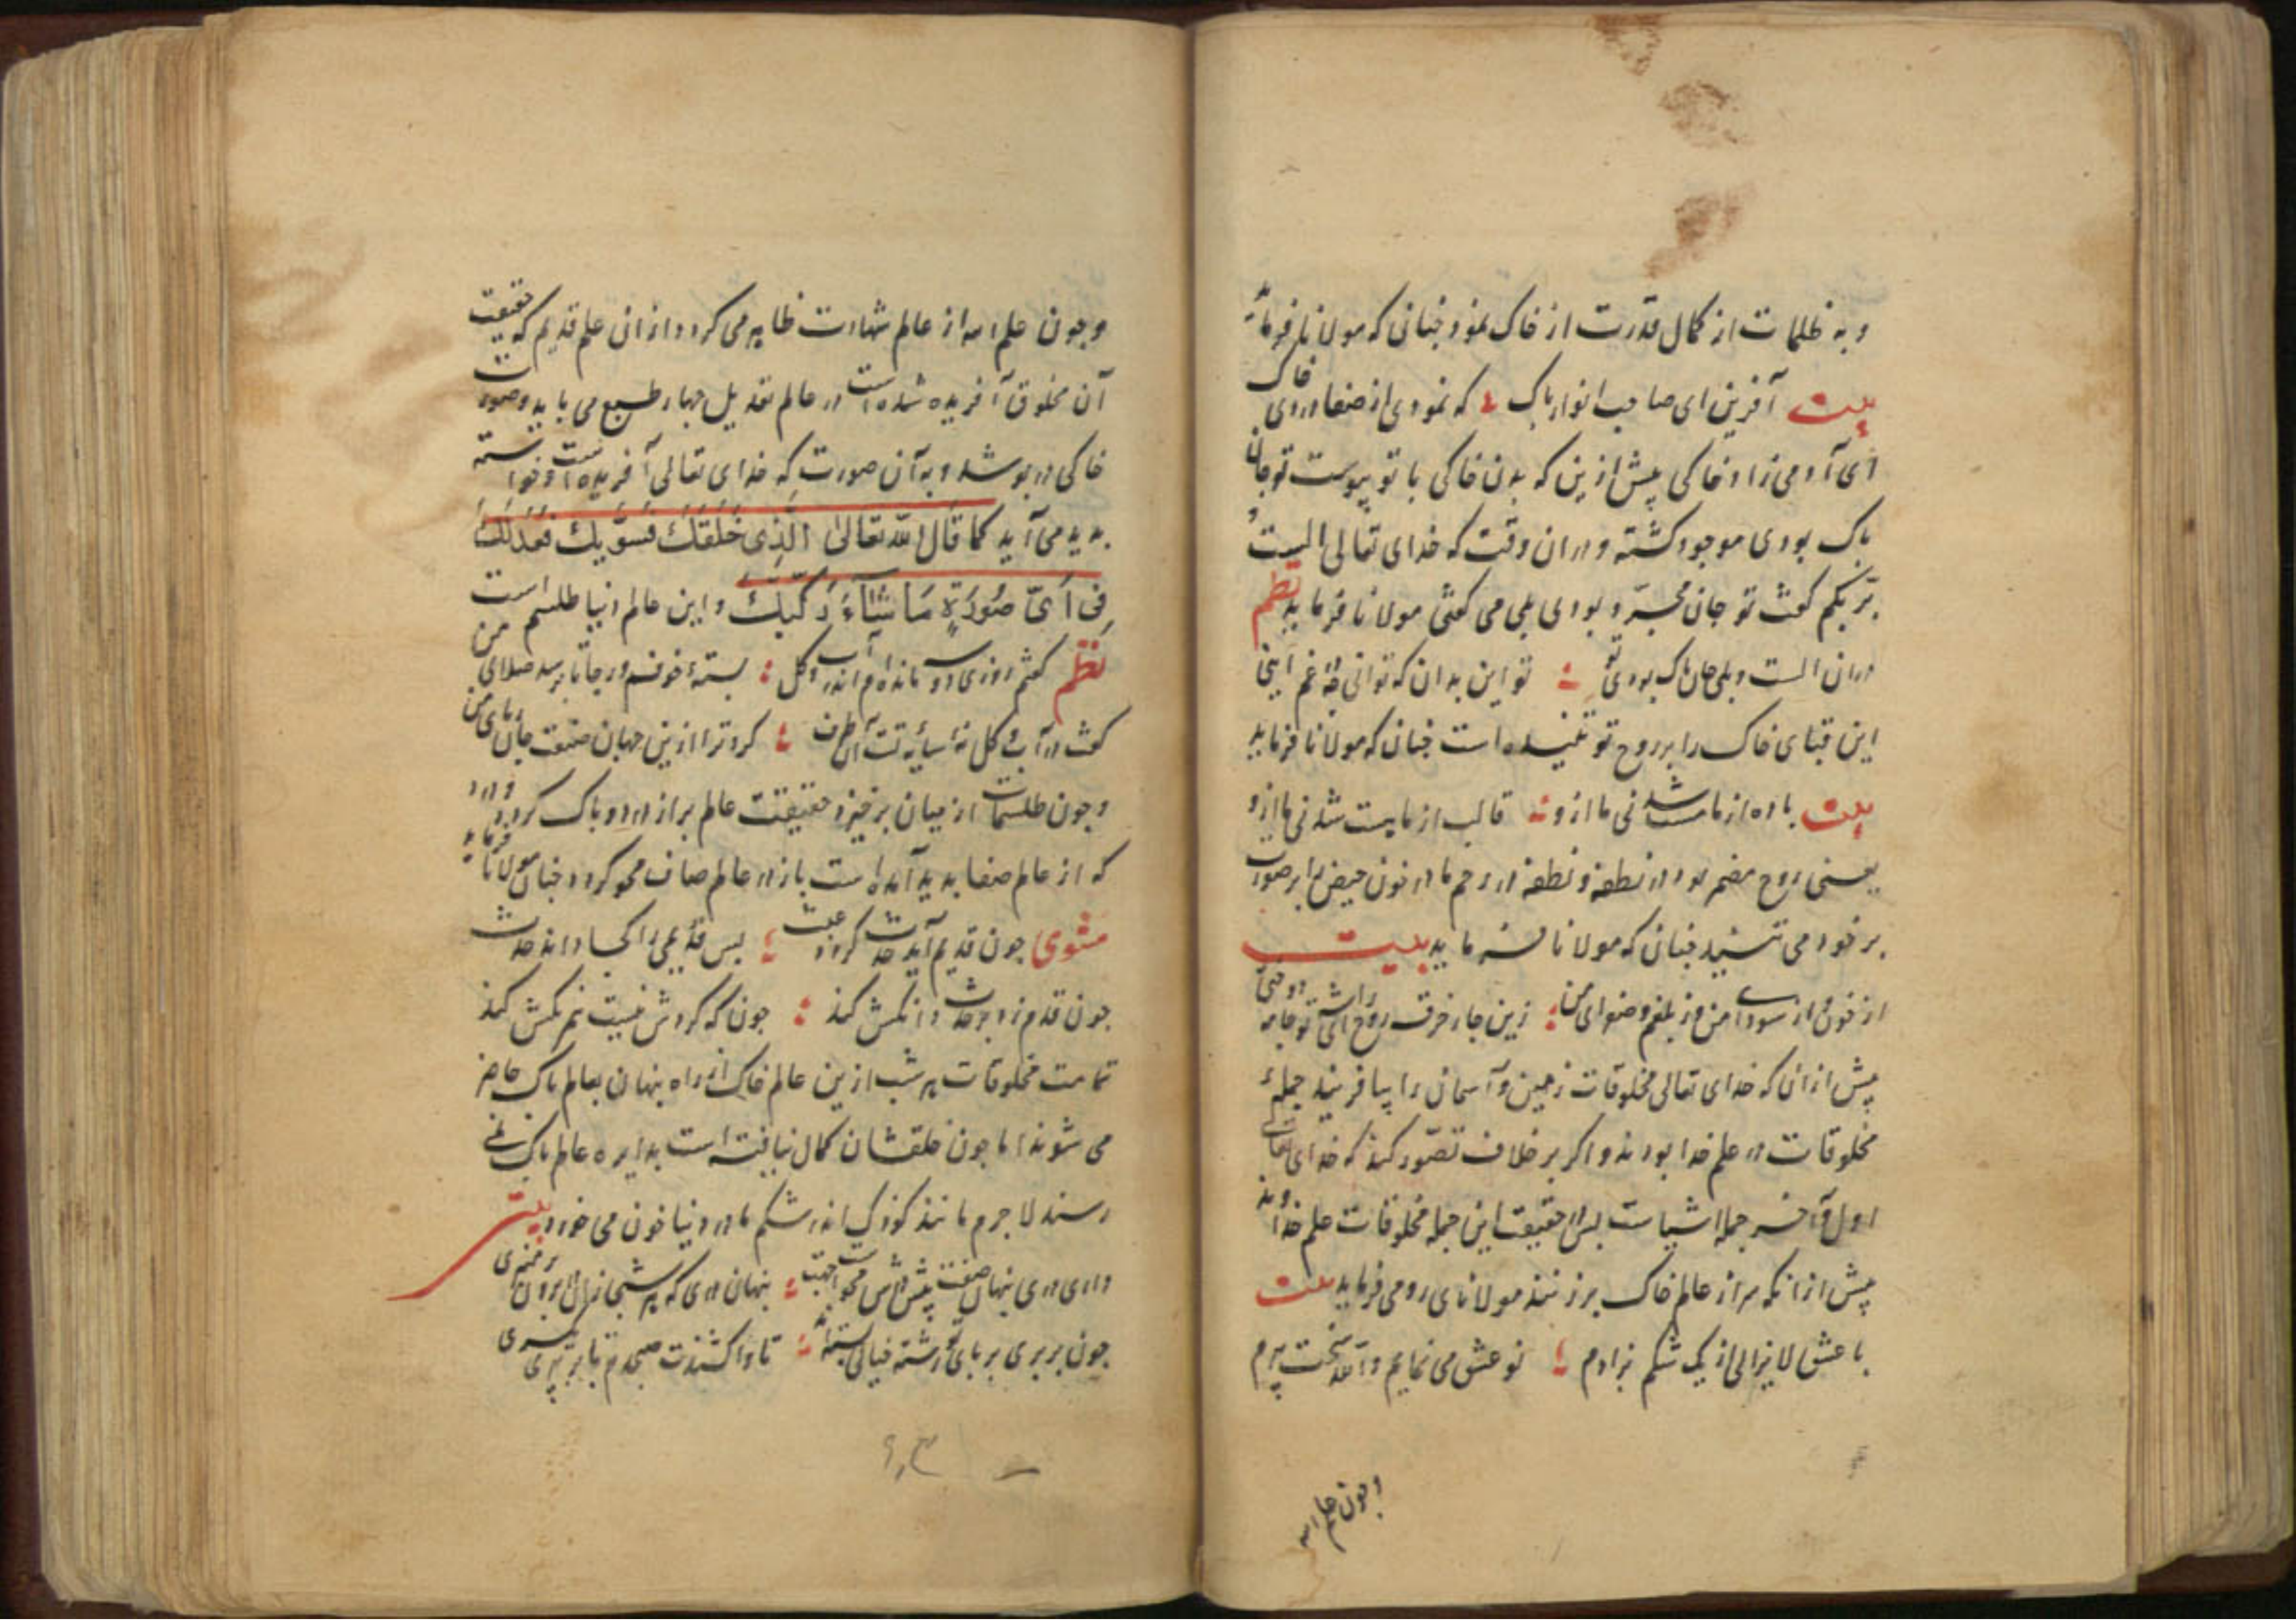 و به ظلمات از کمال قدرت از خاک نمود چنانی که مولانا فرماید
بیت آفرین ای صاحب انوار پاک که نمودی از صفا در روی خاک
ای آدمی زاد خاکی پیش ازین که بدن خاکی با تو پیوست تو جان
پاک بودی موجود کشته و دران وقت که خدای تعالی الست
بربکم کفت تو جان مجرد بودی بلی می کفتی مولانا فرماید نظم
دران الست و بلی جان پاک بودی تو تو این بدان که توانی چه غم اینی
این قبای خاک را بر روح تو تنیده است چنان که مولانا فرماید
بیت باده از ما مست شد نی ما ازو قالب از ما هست شد نی ما ازو
یعنی روح مضمر بود در نطفه و نطفه در رحم مادر خون حیض را بر صورت
بر خود می تنید چنانی که مولانا فرماید بیت
از خون و از سودا من وز بلغم و صفرای من زین چار خرقه روح
پیش از ان که خدای تعالی مخلوقات زمین و آسمان را بیافریند جملهٔ
مخلوقات در علم خدا بودند و اکر بر خلاف تصور کند که خدای تعالی
اول و آخر جمله اشیاست پس حقیقت این جمله مخلوقات علم خداوند
پیش از آنکه سر از عالم خاک برزنند مولانای رومی فرماید بیت
با عشق لایزالی از یک شکم بزادم نو عشق می نمایم والله سخت پیرم
وچون علم الله
وچون علم الله از عالم شهادت ظاهر می کردد از ان علم قدیم که حقیقت
آن مخلوق آفریده شده است در عالم تعدیل چهار طبع می باید و صورت
خاکی در پوشد و به آن صورت که خدای تعالی آفریده است و خواسته
پدید می آید کما قال الله تعالی الَّذِی خَلَقَكَ فَسَوَّیكَ فَعَدَلَكَ
فِی اَیِّ صُورَةٍ مَا شَآءَ رَکَّبَكَ و این عالم دنیا طلسم است
نظم کفتم روزی دو سه مانده ام اندر آب و کل بستهٔ خوفم و رجا تا برسد صلای من
کفت در آب و کل نهٔ سایهٔ تست آن طرف کرد ترا ازین جهان صنعت جان ربای من
وچون طلسمات از میان برخیزد حقیقت عالم براز در و پاک کردد و درد
که از عالم صفا پدید آمده است باز در عالم صاف محو کردد چنان مولانا فرماید
مثنوی چون قدیم آید حدث کردد عبث پس قدیمی را کجا داند حدث
چون قدم زد بر حدث دانکش کند چون که کردش نیست همرنکش کند
تمامت مخلوقات هر شب ازین عالم خاک از راه پنهان بعالم پاک حاضر
می شوند اما چون خلقشان کمال نیافته است بدایره عالم پاک نمی
رسند لا جرم مانند کودک اندر شکم مادر دنیا خون می خورد بیت
داری دری پنهان صفت پنهان دری که هر شبی زان
چون بر پری بر پای تو رشته خیالی بسته اند تا واکشندت صبحدم تا بر نپری